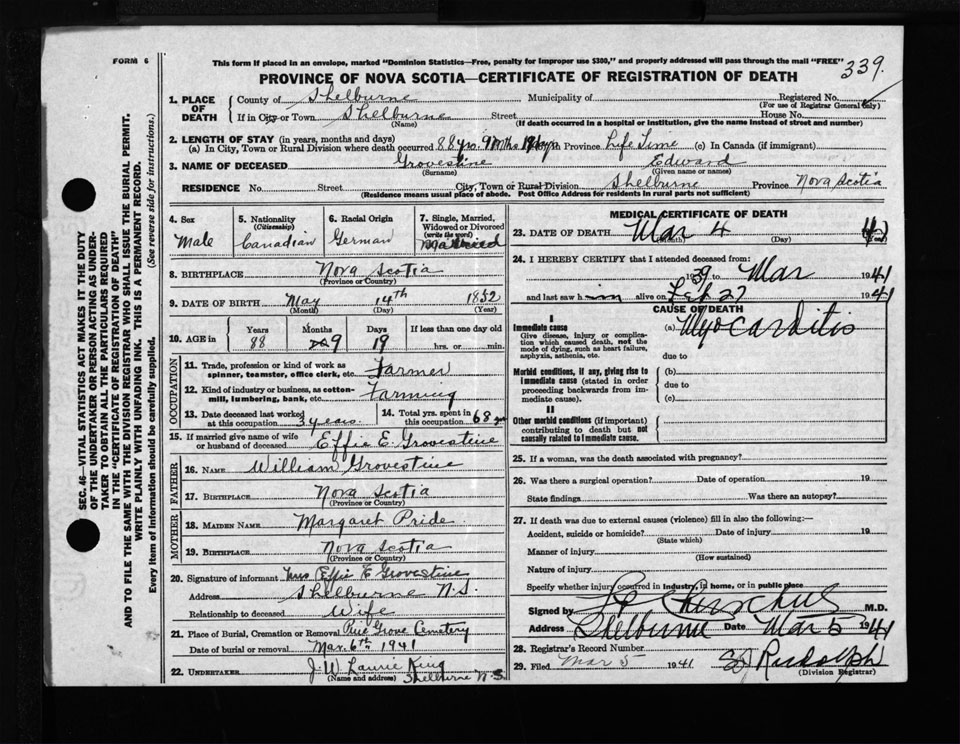 FORM 6
This form if placed in an envelope, marked "Dominion Statistics—Free, penalty for improper use $300," and properly addressed will pass through the mail "FREE"
339.
PROVINCE OF NOVA SCOTIA—CERTIFICATE OF REGISTRATION OF DEATH
1. PLACE OF DEATH County of Shelburne Municipality of Registered No.
(For use of Registrar General only)
If in City or Town Shelburne Street House No.
(Name) (If death occurred in a hospital or institution, give the name instead of street and number)
2. LENGTH OF STAY (in years, months and days)
(a) In City, Town or Rural Division where death occurred 88 yrs. 9 mths. 19 days (b) in Province Life Time (c) In Canada (if immigrant)
3. NAME OF DECEASED Grovestine Edward
(Surname) (Given name or names)
RESIDENCE No. Street City, Town or Rural Division Shelburne Province Nova Scotia
(Residence means usual place of abode. Post Office Address for residents in rural parts not sufficient)
4. Sex 5. Nationality (Citizenship) 6. Racial Origin 7. Single, Married, Widowed or Divorced (write the word)
Male Canadian German Married
8. BIRTHPLACE Nova Scotia
(Province or Country)
9. DATE OF BIRTH May 14th 1852
(Month) (Day) (Year)
10. AGE in Years Months Days If less than one day old
88 9 19 hrs. or min.
OCCUPATION
11. Trade, profession or kind of work as spinner, teamster, office clerk, etc. Farmer
12. Kind of industry or business, as cotton-mill, lumbering, bank, etc. Farming
13. Date deceased last worked at this occupation 3 years 14. Total yrs. spent in this occupation 68 yrs
15. If married give name of wife or husband of deceased Effie E. Grovestine
FATHER
16. NAME William Grovestine
17. BIRTHPLACE Nova Scotia
(Province or Country)
MOTHER
18. MAIDEN NAME Margaret Pride
19. BIRTHPLACE Nova Scotia
(Province or Country)
20. Signature of informant Mrs Effie E Grovestine
Address Shelburne N.S.
Relationship to deceased Wife
21. Place of Burial, Cremation or Removal Pine Grove Cemetery
Date of burial or removal Mar. 6th 1941
22. UNDERTAKER J. W. Laurie King
(Name and address) Shelburne N.S.
MEDICAL CERTIFICATE OF DEATH
23. DATE OF DEATH Mar 4
(Month) (Day) (Year)
24. I HEREBY CERTIFY that I attended deceased from:
39 to Mar 1941
and last saw him alive on Feb 27 1941
CAUSE OF DEATH
I
Immediate cause (a) Myocarditis
Give disease, injury or complication which caused death, not the mode of dying, such as heart failure, asphyxia, asthenia, etc.
due to
Morbid conditions, if any, giving rise to immediate cause (stated in order proceeding backwards from immediate cause). (b)
due to
(c)
II
Other morbid conditions (if important) contributing to death but not causally related to immediate cause.
25. If a woman, was the death associated with pregnancy?
26. Was there a surgical operation? Date of operation 19
State findings Was there an autopsy?
27. If death was due to external causes (violence) fill in also the following:—
Accident, suicide or homicide? Date of injury 19
(State which)
Manner of injury
(How sustained)
Nature of injury
Specify whether injury occurred in industry, in home, or in public place
Signed by M.D.
Address Shelburne Date Mar 5 1941
28. Registrar's Record Number
29. Filed Mar 5 1941 Rudolph
(Division Registrar)
SEC. 46—VITAL STATISTICS ACT MAKES IT THE DUTY
OF THE UNDERTAKER OR PERSON ACTING AS UNDER-
TAKER TO OBTAIN ALL THE PARTICULARS REQUIRED
IN THE "CERTIFICATE OF REGISTRATION OF DEATH"
AND TO FILE THE SAME WITH THE DIVISION REGISTRAR WHO SHALL ISSUE THE BURIAL PERMIT.
WRITE PLAINLY WITH UNFADING INK. THIS IS A PERMANENT RECORD.
Every item of information should be carefully supplied. (See reverse side for instructions.)